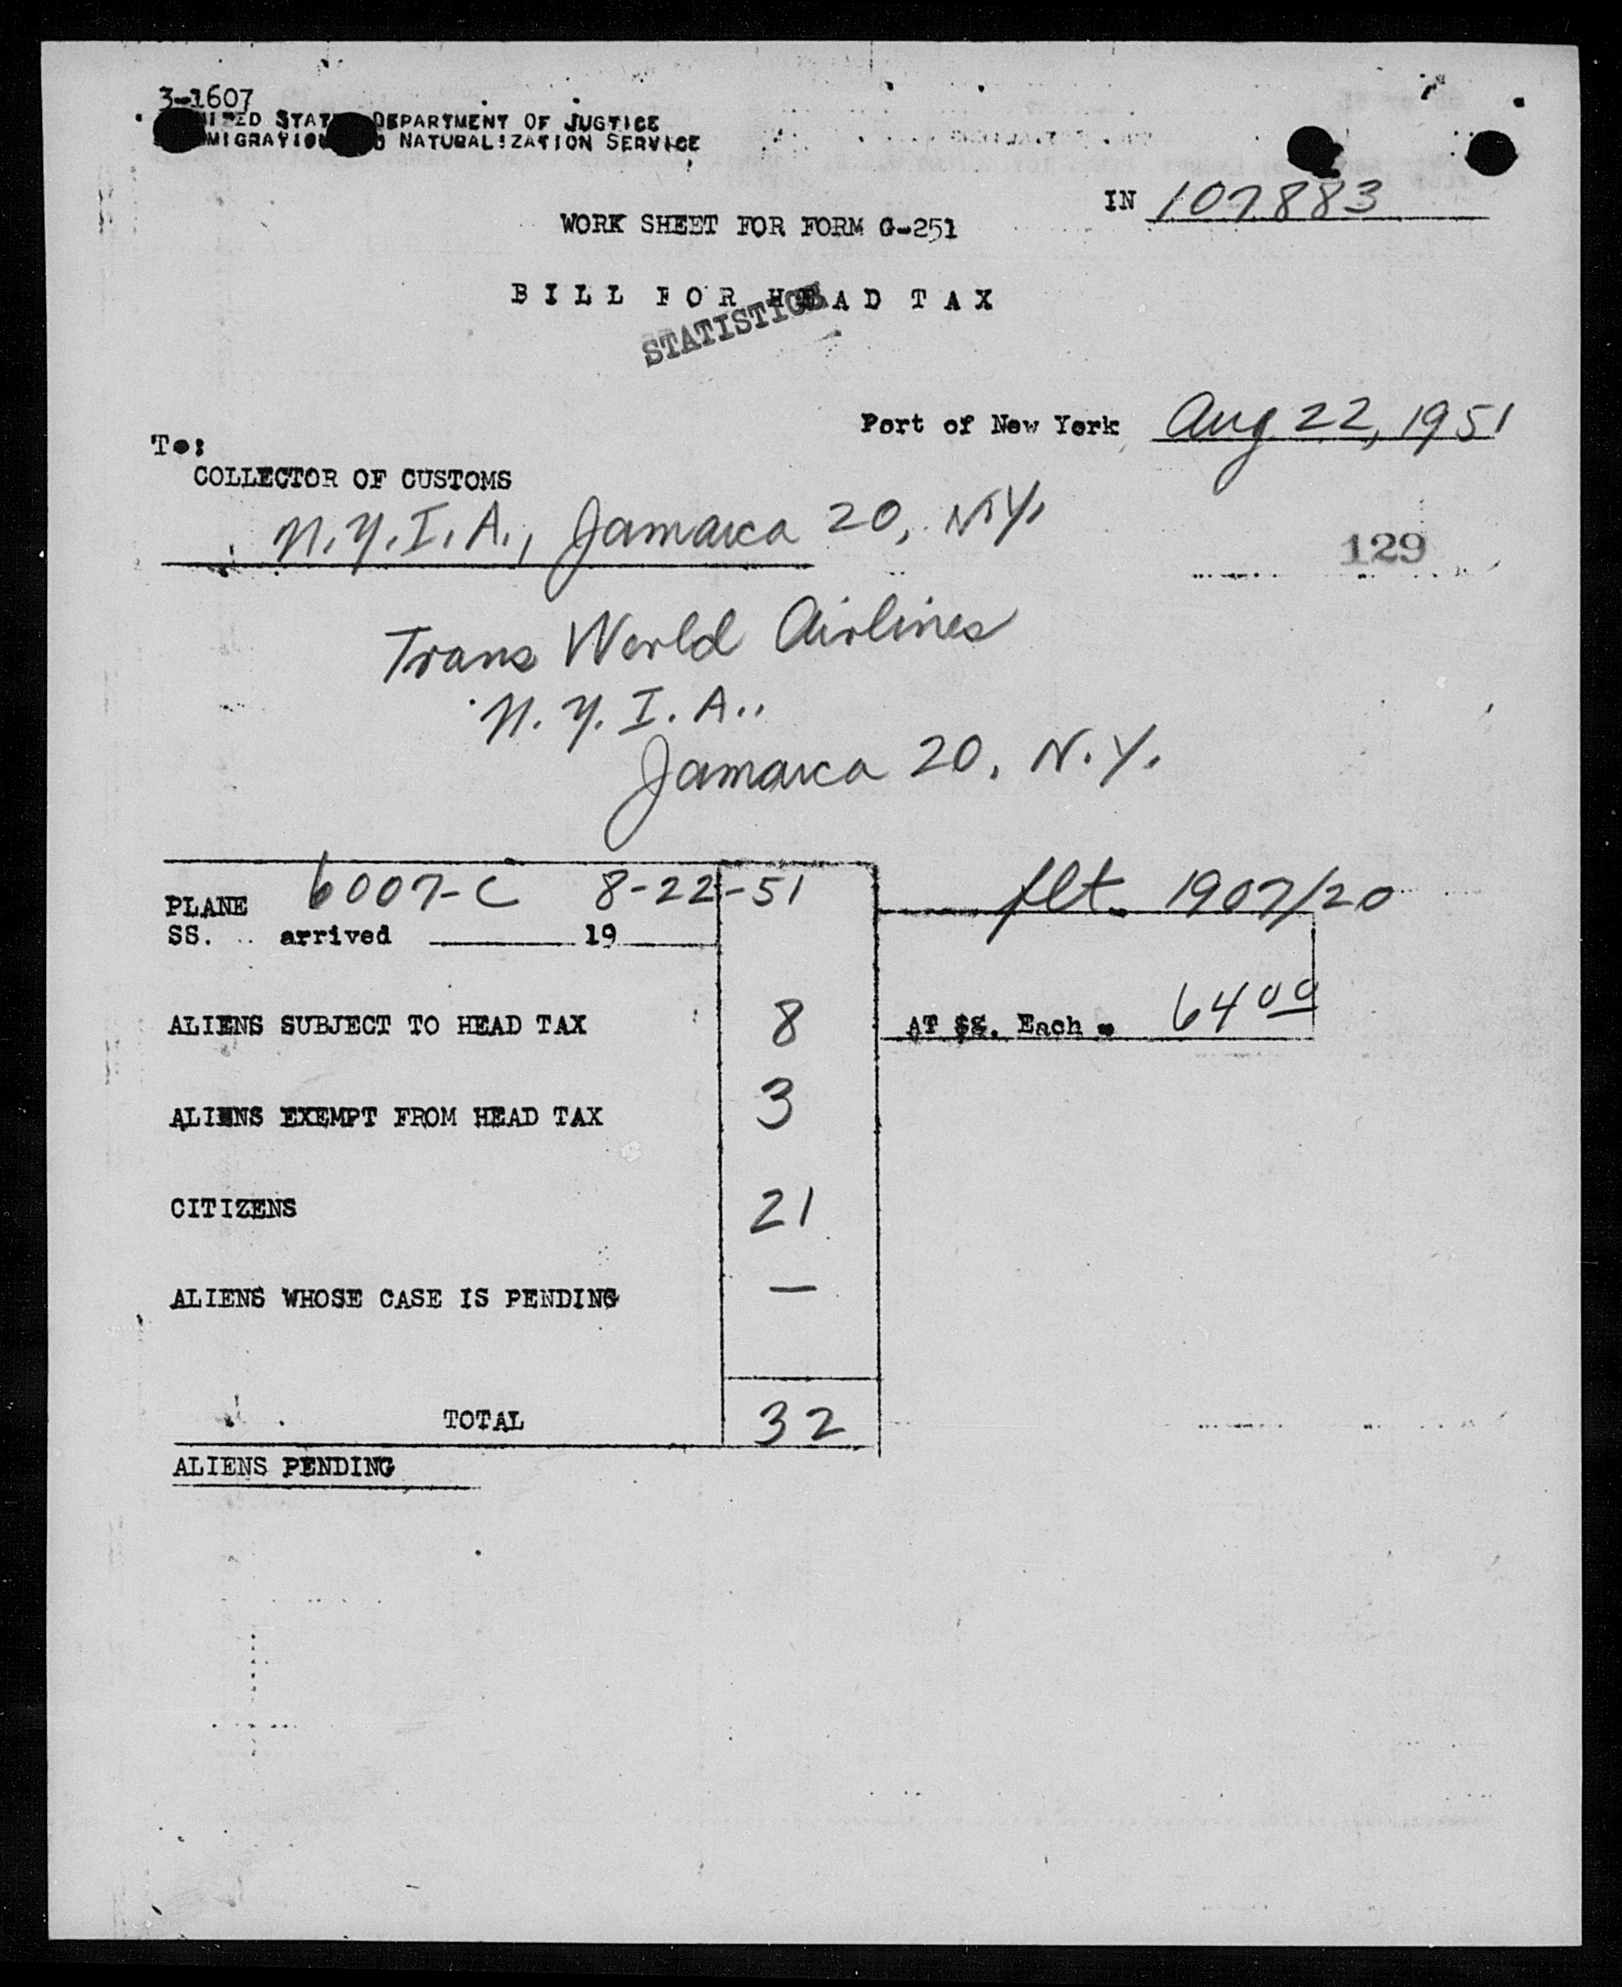 3-1607
UNITED STATES DEPARTMENT OF JUSTICE
IMMIGRATION AND NATURALIZATION SERVICE
IN 107883
WORK SHEET FOR FORM G-251
BILL FOR HEAD TAX
STATISTICS
Port of New York Aug 22, 1951
To:
COLLECTOR OF CUSTOMS
N.Y.I.A., Jamaica 20, N.Y.
129
Trans World Airlines
N.Y.I.A.,
Jamaica 20, N.Y.
PLANE 6007-C 8-22-51 flt. 1907/20
SS. arrived 19
ALIENS SUBJECT TO HEAD TAX 8 AT $8. Each = 64 00
ALIENS EXEMPT FROM HEAD TAX 3
CITIZENS 21
ALIENS WHOSE CASE IS PENDING —
TOTAL 32
ALIENS PENDING